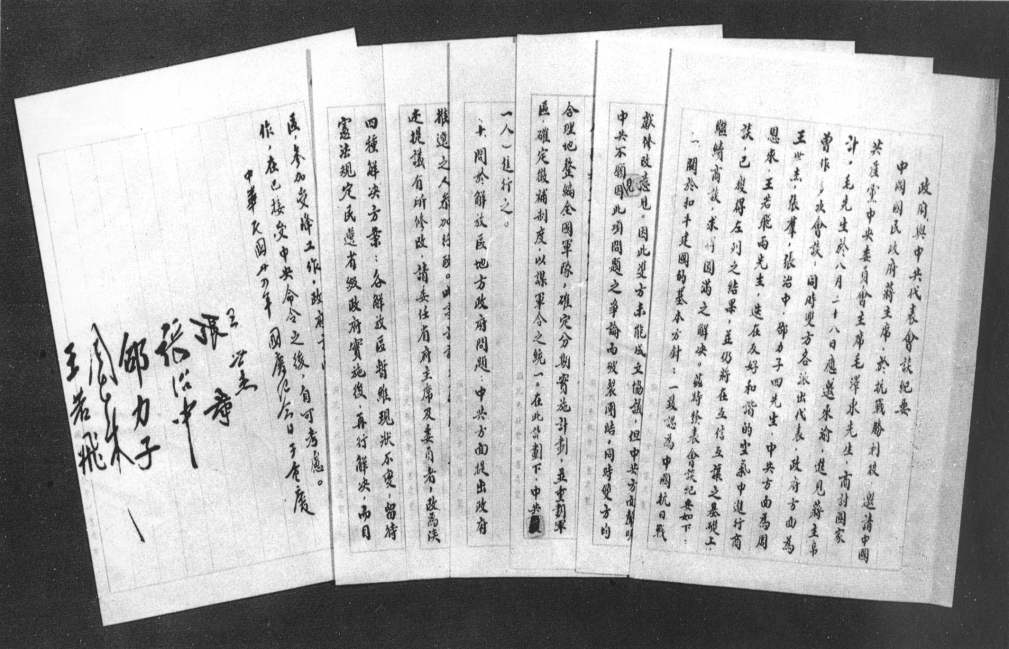 政府與中共代表會談紀要
中國國民政府蔣主席於抗戰勝利後，邀請中國
共產黨中央委員會主席毛澤東先生，商討國家
大計，毛先生於八月二十八日應邀來渝，進見蔣主席
曾作多次會談，同時雙方各派出代表，政府方面為
王世杰，張羣，張治中，邵力子四先生，中共方面為周
恩來，王若飛兩先生，迭在友好和諧的空氣中進行商
談，已獲得左列之結果，並仍將在互信互讓之基礎上，
繼續商談，求得圓滿之解決。茲特發表會談紀要如下：
一、關於和平建國的基本方針：一致認為中國抗日戰
中央不願因此項問題之爭論而破裂團結，同時雙方均
獻修改意見，因此雙方未能成立協議，但中共方面聲明
合理地整編全國軍隊，確定分期實施計劃，並重劃軍
區，確定徵補制度，以謀軍令之統一。在此計劃下，中共
一人）進行之。
十、關於解放區地方政府問題，中共方面提出政府
推選之人參加行政。
述提議有所修改，請委任省府主席及委員者，改為陝
四種解決方案：各解放區暫維現狀不變，留待
憲法規定民選省級政府實施後，再行解決，而目
區，參加受降工作，政府
作，在已接受中央命令之後，自可考慮。
中華民國卅四年國慶紀念日於重慶
王世杰
張羣
張治中
邵力子
周恩來
王若飛